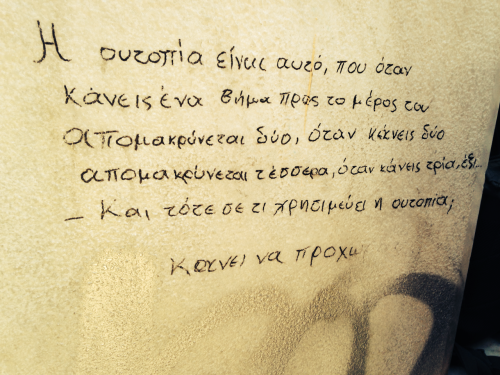 Η ουτοπία είναι αυτό, που όταν
κάνεις ένα βήμα προς το μέρος του
απομακρύνεται δύο, όταν κάνεις δύο
απομακρύνεται τέσσερα, όταν κάνεις τρία, έξι...
– Και τότε σε τι χρησιμεύει η ουτοπία;
Κάνει να προχω